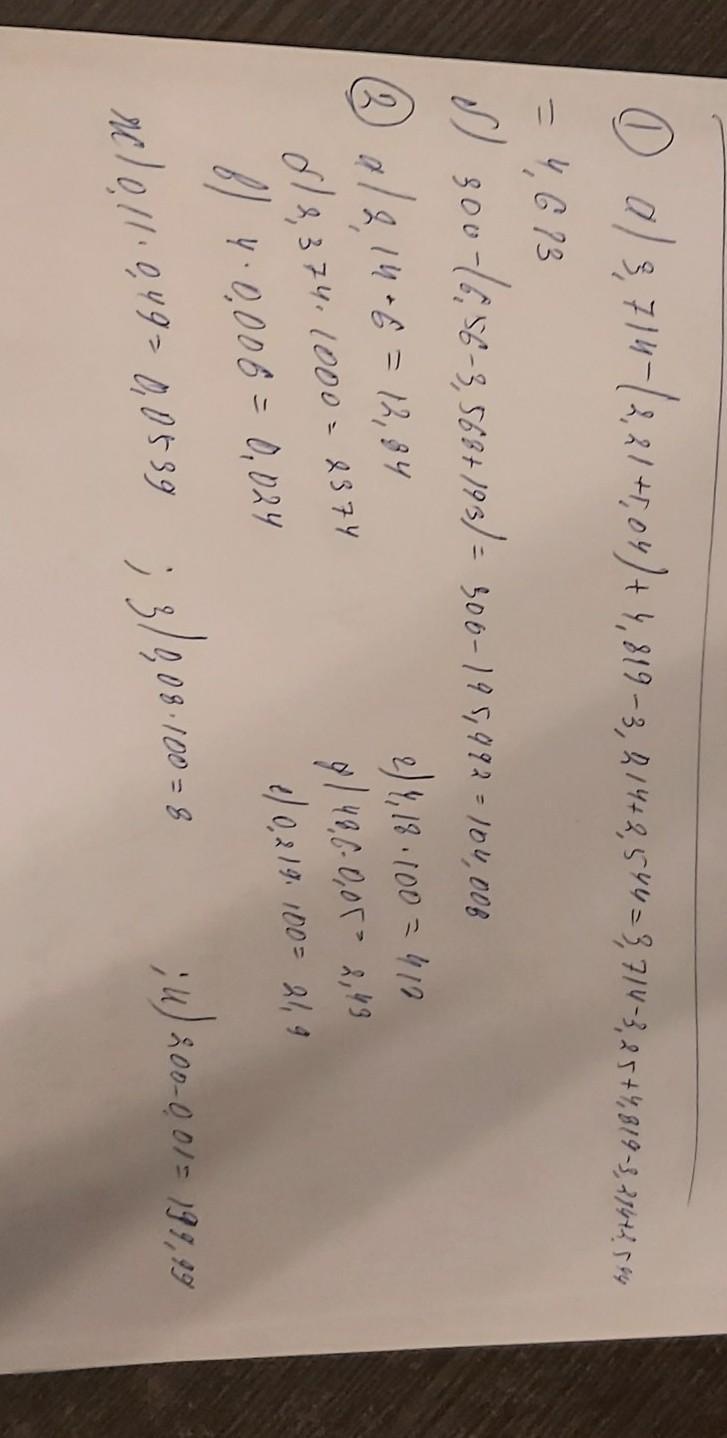 ① а) 3,714-(2,21+5,04)+4,819-3,214+2,544=3,714-3,25+4,819-3,214+2,544
= 4,613
б) 300-(6,56-3,568+193)=300-195,992=104,008
② а) 2,14·6=12,84
б) 2,374·1000=2374
в) 4·0,006=0,024
г) 4,18·100=418
д) 48,6·0,05=2,43
е) 0,219·100=21,9
ж) 0,11·0,49=0,0539 ; з) 0,08·100=8 ; и) 200-0,01=199,99